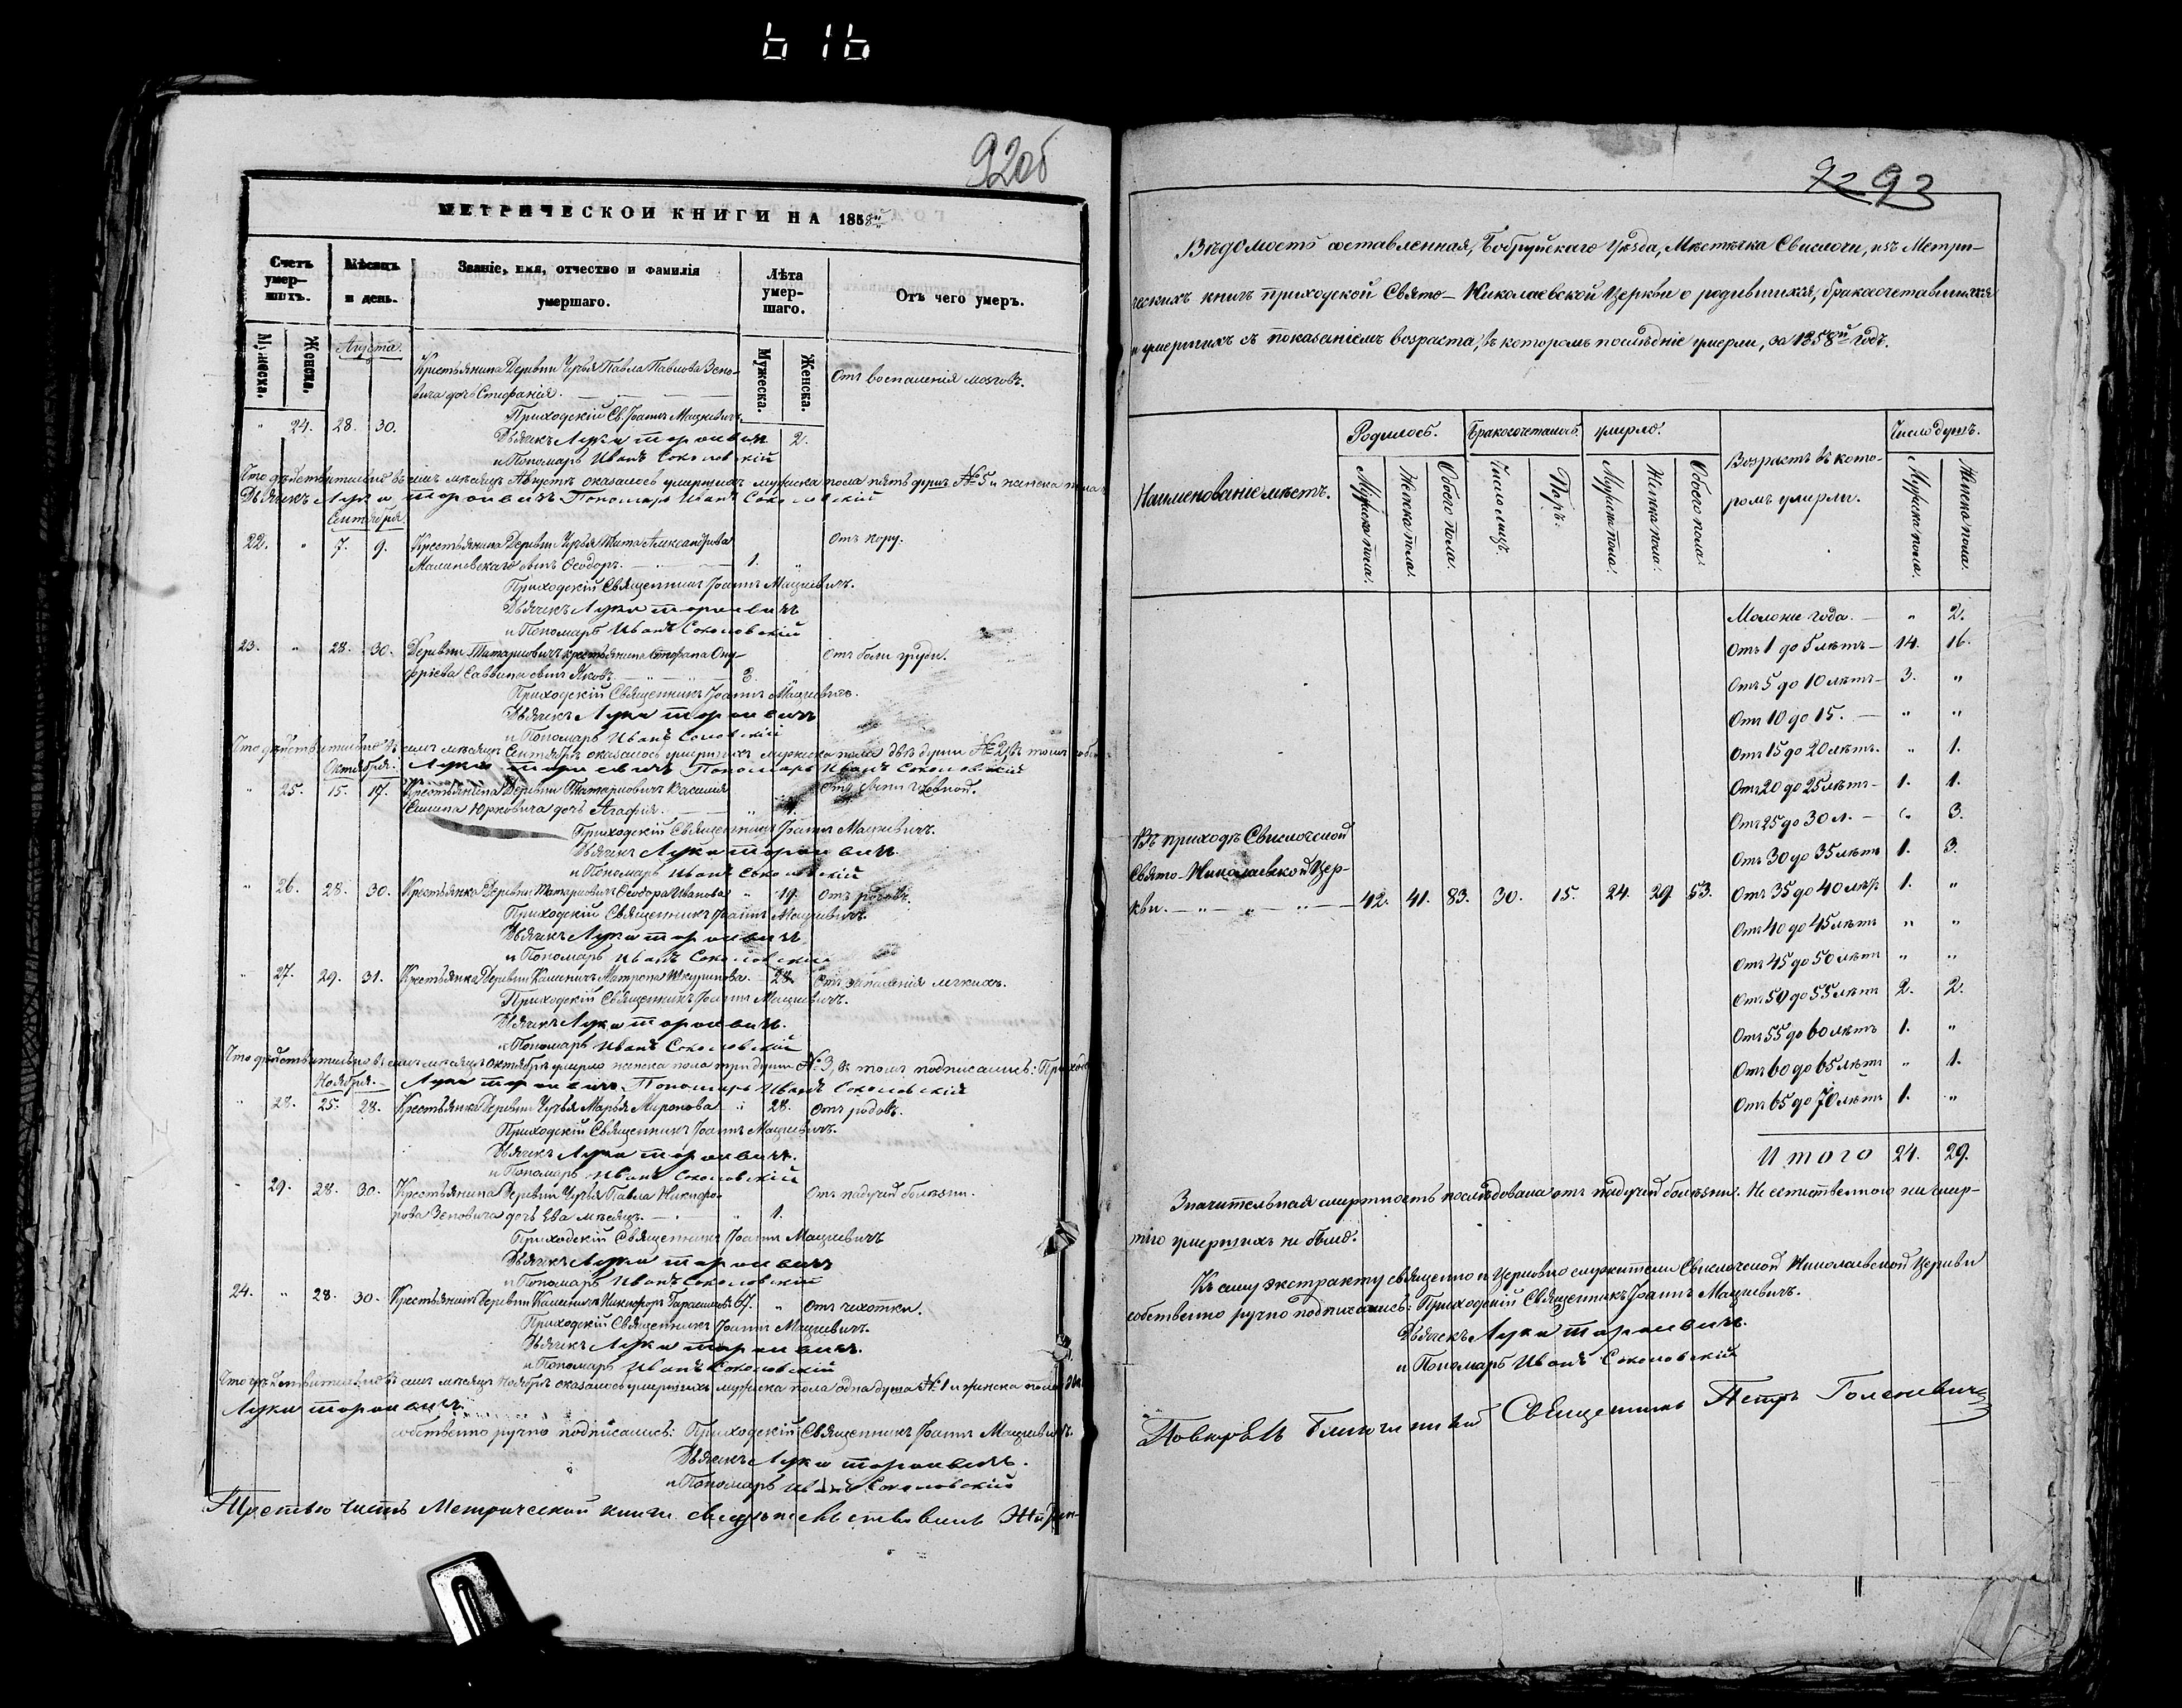 616
92об
МЕТРИЧЕСКОЙ КНИГИ НА 1858й
Счетъ умер-
шихъ.
Мѣсяцъ
и день.
Званіе, имя, отчество и фамилія
умершаго.
Лѣта
умер-
шаго.
Отъ чего умеръ.
Мужеска.
Женска.
Мужеска.
Женска.
Августа.
Крестьянина Деревни Чучья Павла Павлова Зено-
вича дочь Стефанія.
Отъ воспаленія мозговъ.
" 24. 28. 30. 2.
Приходскій Св. Іоаннъ Мацкевичъ.
Дьячекъ Лука
и Пономарь Иванъ Соколовскій
Что дѣйствительно въ семъ мѣсяцѣ Августѣ оказалось умершихъ мужеска пола пять душъ № 5 и женска пола
Дьячекъ Лука Пономарь Иванъ Соколовскій
Сентября.
22. " 7. 9. Крестьянина Деревни Чучья Тита Александрова
Малиновскаго сынъ Ѳеодоръ. 1. "
Отъ кору.
Приходскій Священникъ Іоаннъ Мацкевичъ.
Дьячекъ Лука
и Пономарь Иванъ Соколовскій
23. " 28. 30. Деревни Татарновичъ крестьянина Стефана Ону-
фріева Саввина сынъ Яковъ. 3.
Отъ боли груди.
Приходскій Священникъ Іоаннъ Мацкевичъ.
Дьячекъ Лука
и Пономарь Иванъ
Что дѣйствительно въ семъ мѣсяцѣ Сентябрѣ оказалось умершихъ мужеска пола двѣ души № 2, въ томъ
Октября. Лука Пономарь Иванъ Соколовскій
" 25. 15. 17. Крестьянина Деревни Татарновичъ Василія
Юрковича дочь Агафія.
Приходскій Священникъ Іоаннъ Мацкевичъ.
Дьячекъ Лука
и Пономарь Иванъ Соколовскій
" 26. 28. 30. Крестьянка Деревни Татарновичъ Ѳеодора Иванова " 19. Отъ родовъ.
Приходскій Священникъ Іоаннъ Мацкевичъ.
Дьячекъ Лука
и Пономарь Иванъ Соколовскій
" 27. 29. 31. Крестьянка Деревни Каменичъ Матрона 28. Отъ запаленія легкихъ.
Приходскій Священникъ Іоаннъ Мацкевичъ.
Дьячекъ Лука
и Пономарь Иванъ Соколовскій
Что дѣйствительно въ семъ мѣсяцѣ Октябрѣ умерло женска пола три души № 3, въ томъ подписались:
Ноября. Лука Пономарь Иванъ Соколовскій
" 28. 25. 28. Крестьянка Деревни Чучья Марья Миронова " 28. Отъ родовъ.
Приходскій Священникъ Іоаннъ Мацкевичъ.
Дьячекъ Лука
и Пономарь Иванъ Соколовскій
" 29. 28. 30. Крестьянина Деревни Чучья Павла Никифо-
рова Зеновича дочь Ева мѣсяцъ. " 1.
Отъ падучей болѣзни.
Приходскій Священникъ Іоаннъ Мацкевичъ
Дьячекъ Лука
и Пономарь Иванъ Соколовскій
24. " 28. 30. Крестьянинъ Деревни Каменичъ Никифоръ Тарасовъ 67. " Отъ чихотки.
Приходскій Священникъ Іоаннъ Мацкевичъ.
Дьячекъ Лука
и Пономарь Иванъ Соколовскій
Что дѣйствительно въ семъ мѣсяцѣ Ноябрѣ оказалось умершихъ мужеска пола одна душа № 1 и женска пола
Лука
собственноручно подписались: Приходскій Священникъ Іоаннъ Мацкевичъ.
Дьячекъ Лука
и Пономарь Иванъ Соколовскій
Третью часть Метрической книги свидѣтельствовалъ
92 93
Вѣдомость составленная, Бобруйскаго Уѣзда, Мѣстечка Свислочи, изъ Метри-
ческихъ книгъ приходской Свято-Николаевской Церкви о родившихся, бракосочетавшихся
и умершихъ съ показаніемъ возраста, въ которомъ послѣдніе умерли, за 1858й годъ.
Наименованіе мѣстъ.
Родилось.
Бракосочеталось.
Умерло.
Возрастъ въ кото-
ромъ умерли.
Число душъ.
Мужеска пола.
Женска пола.
Обоего пола.
Число лицъ.
Паръ.
Мужеска пола.
Женска пола.
Обоего пола.
Мужеска пола.
Женска пола.
Моложе года. " 2.
Отъ 1 до 5 лѣтъ 14. 16.
Отъ 5 до 10 лѣтъ 3. "
Отъ 10 до 15. " "
Отъ 15 до 20 лѣтъ. " 1.
Отъ 20 до 25 лѣтъ 1. 1.
Отъ 25 до 30 л. " 3.
Отъ 30 до 35 лѣтъ 1. 3.
Въ приходѣ Свислочской
Свято-Николаевской Цер-
кви. 42. 41. 83. 30. 15. 24. 29. 53.
Отъ 35 до 40 лѣтъ 1. "
Отъ 40 до 45 лѣтъ " "
Отъ 45 до 50 лѣтъ " "
Отъ 50 до 55 лѣтъ 2. 2.
Отъ 55 до 60 лѣтъ 1. "
Отъ 60 до 65 лѣтъ " 1.
Отъ 65 до 70 лѣтъ 1. "
Итого 24. 29.
Значительная смертность послѣдовала отъ падучей болѣзни. Не естественною же смер-
тію умершихъ не было.
Къ сему экстракту священно и Церковно служители Свислочской Николаевской Церкви
собственно ручно подписались: Приходскій Священникъ Іоаннъ Мацкевичъ.
Дьячекъ Лука
и Пономарь Иванъ Соколовскій
Повѣрялъ Благочинный Священникъ Петръ Голеневичъ